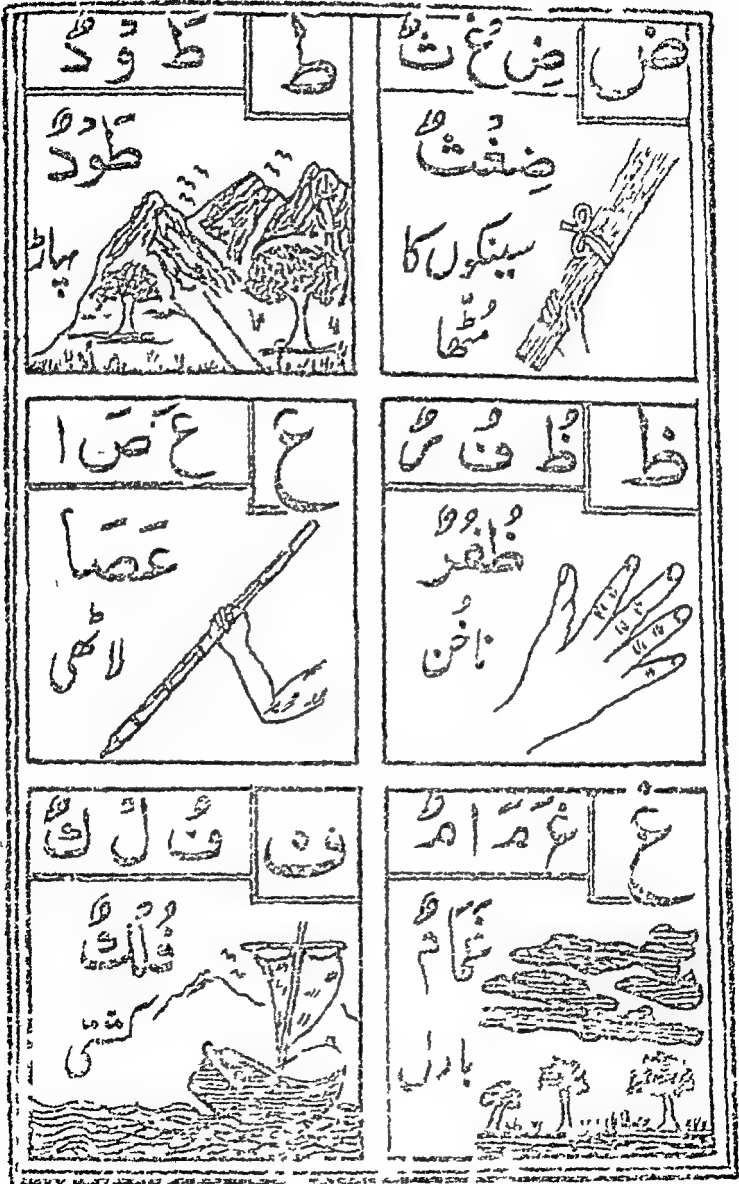 ض
ضِ غْ ثٌ
ضِغْثٌ
سینکوں کا
مُٹھا
ط
طَ وْ دٌ
طَوْدٌ
پہاڑ
ظ
ظُ فُ رٌ
ظُفُرٌ
ناخُن
ع
عَ صَ ا
عَصَا
لاٹھی
غ
غَ مَ ا مٌ
غَمَامٌ
بادل
ف
فُ لْ كٌ
فُلْكٌ
کشتی